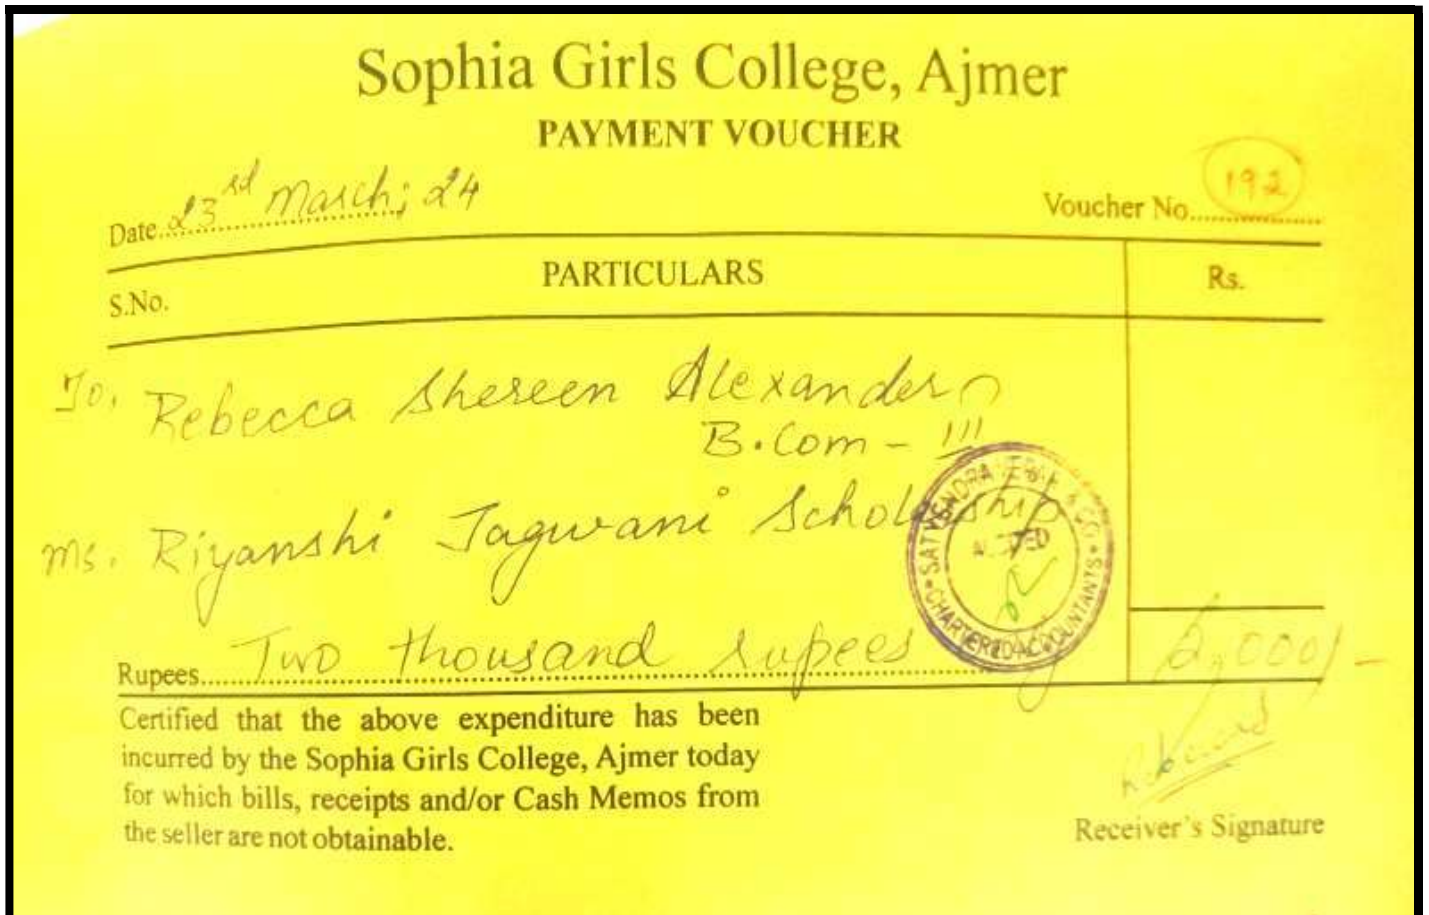 Sophia Girls College, Ajmer
PAYMENT VOUCHER
Date 23rd March; 24
Voucher No. 192
S.No. PARTICULARS Rs.
To, Rebecca Shereen Alexander
B.Com - III
Ms. Riyanshi Jagwani Scholarship
SATYENDRA & CO.
AUDITED
CHARTERED ACCOUNTANTS
Rupees Two thousand rupees 2,000/-
Certified that the above expenditure has been
incurred by the Sophia Girls College, Ajmer today
for which bills, receipts and/or Cash Memos from
the seller are not obtainable.
Receiver's Signature